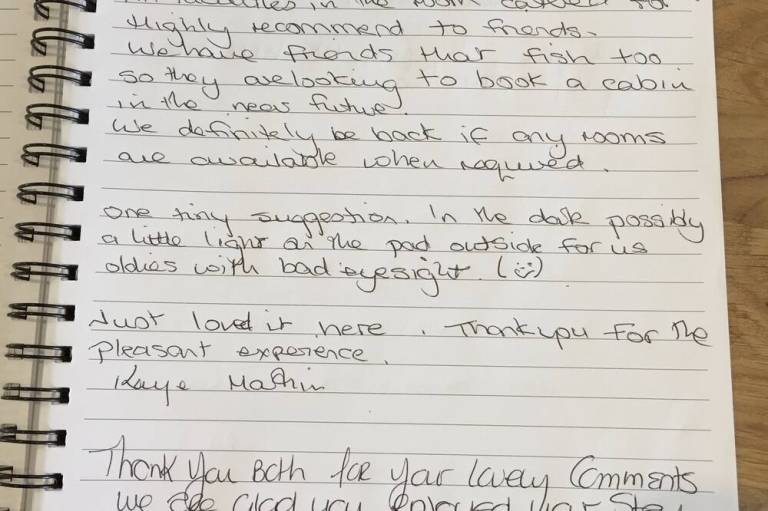 in the room catered for
Highly recommend to friends.
We have friends that fish too
so they are looking to book a cabin
in the near future.
We definitely be back if any rooms
are available when required.
One tiny suggestion. In the dark possibly
a little light on the pad outside for us
oldies with bad eyesight. (☺)
Just loved it here. Thankyou for the
pleasant experience.
Kaye Machin
Thank You Both for your lovely Comments
we are glad you enjoyed your stay